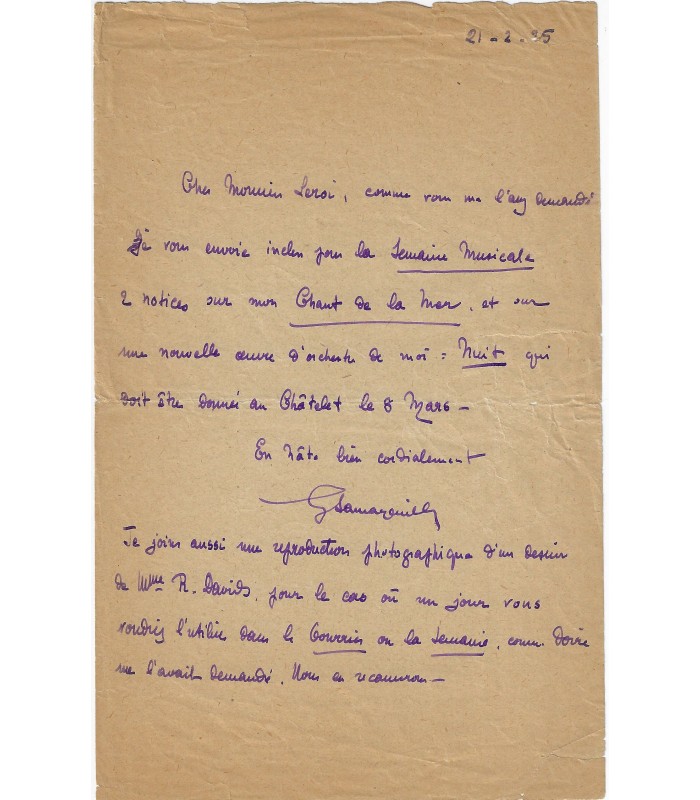 21 - 2 - 35
Cher Monsieur Leroi, comme vous me l'avez demandé
Je vous envoie inclus pour la Semaine Musicale
2 notices sur mon Chant de la Mer, et sur
une nouvelle œuvre d'orchestre de moi : Nuit qui
doit être donnée au Châtelet le 8 Mars —
En hâte bien cordialement
G Samazeuilh
Je joins aussi une reproduction photographique d'un dessin
de Mme R. Davids, pour le cas où un jour vous
voudriez l'utiliser dans le Courrier ou la Semaine, comme
me l'avait demandé. Nous en recauserons —